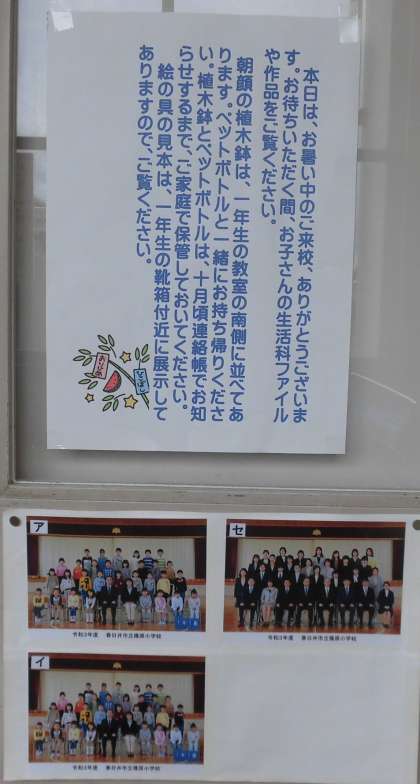 本日は、お暑い中のご来校、ありがとうございま
す。お待ちいただく間、お子さんの生活科ファイル
や作品をご覧ください。
朝顔の植木鉢は、一年生の教室の南側に並べてあ
ります。ペットボトルと一緒にお持ち帰りくださ
い。植木鉢とペットボトルは、十月頃連絡帳でお知
らせするまで、ご家庭で保管しておいてください。
絵の具の見本は、一年生の靴箱付近に展示して
ありますので、ご覧ください。
おりひめ
ひこぼし
ア
令和3年度 春日井市立篠原小学校
セ
令和3年度 春日井市立篠原小学校
イ
令和3年度 春日井市立篠原小学校